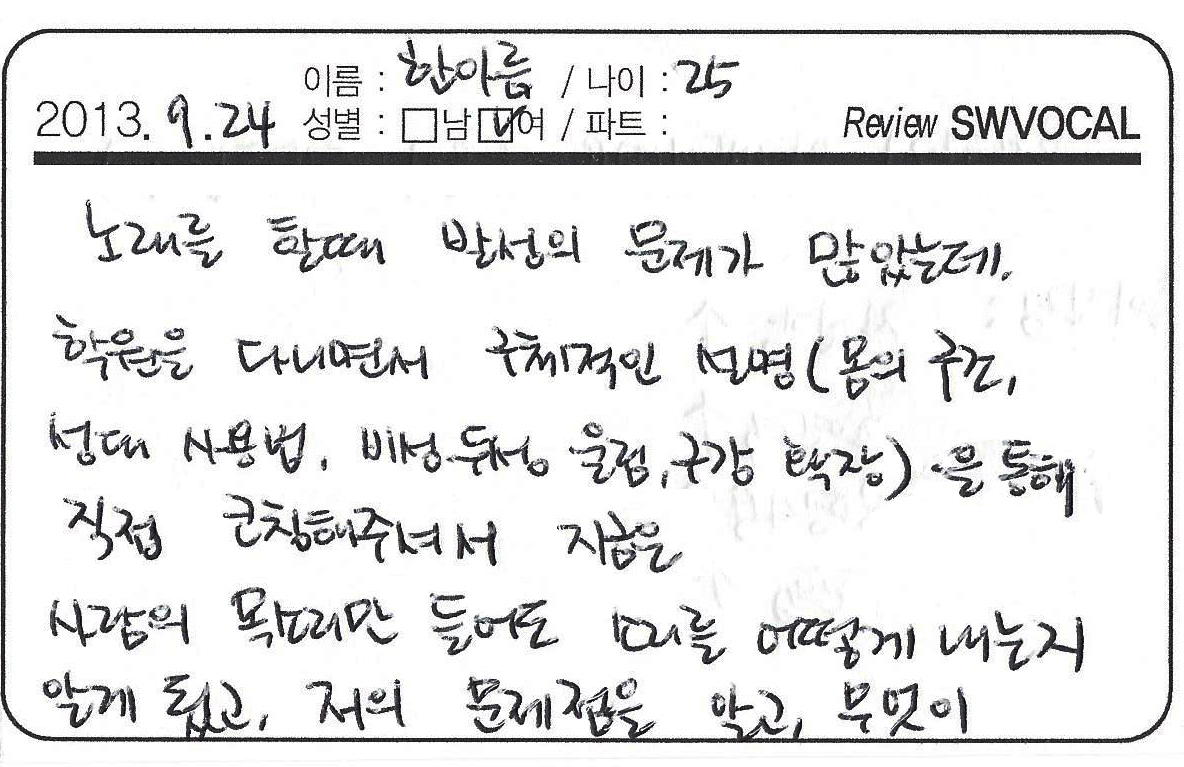 이름 : 한아름 / 나이 : 25
2013. 9.24 성별 : □남 ☑여 / 파트 : Review SWVOCAL
노래를 할때 발성의 문제가 많았는데.
학원을 다니면서 구체적인 설명(몸의 구조,
성대 사용법, 비성·두성 울림, 구강 확장)을 통해
직접 코칭해주셔서 지금은
사람의 목소리만 들어도 소리를 어떻게 내는지
알게 됐고, 저의 문제점을 알고, 무엇이